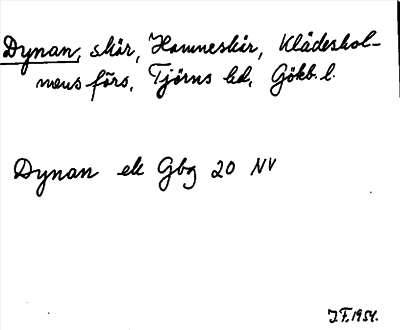 Dynan, skär, Hamneskär, Klädeshol-
mens förs. Tjörns hd, Gökb. l.
Dynan ek Gbg 20 NV
J F. 1954.